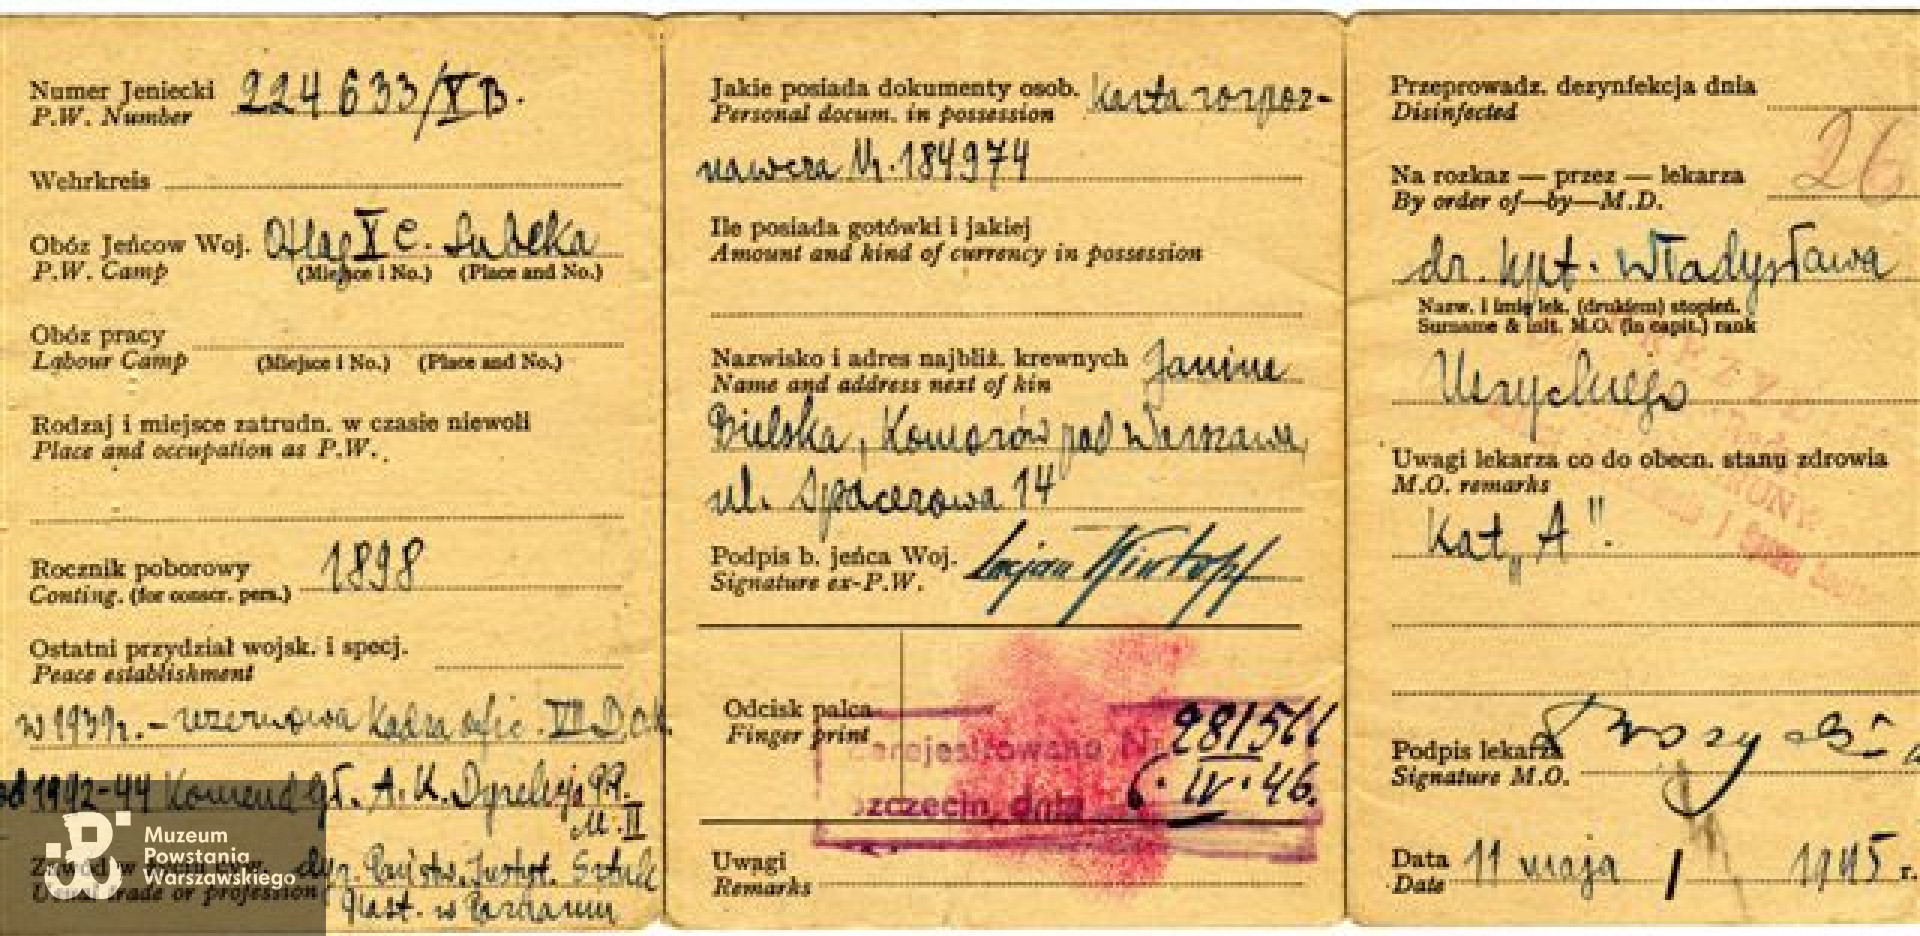 Numer Jeniecki 224633/XB.
P.W. Number
Wehrkreis
Obóz Jeńcow Woj. Oflag X C. Lubeka
P.W. Camp (Miejsce i No.) (Place and No.)
Obóz pracy
Labour Camp (Miejsce i No.) (Place and No.)
Rodzaj i miejsce zatrudn. w czasie niewoli
Place and occupation as P.W.
Rocznik poborowy 1898
Conting. (for conscr. pers.)
Ostatni przydział wojsk. i specj.
Peace establishment
w 1939r. - rezerwowa Kadra ofic. VII D.O.K.
od 1942-44 Komend gł. A.K.
M. II
dyr. Państw. Instyt. Sztuk
Plast. w Poznaniu
Usual trade or profession
Muzeum
Powstania
Warszawskiego
Jakie posiada dokumenty osob. Karta rozpoz-
Personal docum. in possession
nawcza Nr. 184974
Ile posiada gotówki i jakiej
Amount and kind of currency in possession
Nazwisko i adres najbliż. krewnych Janina
Name and address next of kin
Bielska, Komorów pod Warszawą
ul. Spacerowa 14
Podpis b. jeńca Woj.
Signature ex-P.W.
Odcisk palca
Finger print
Zarejestrowano Nr 281566
Szczecin, dnia 6. IV. 46.
Uwagi
Remarks
Przeprowadz. dezynfekcja dnia
Disinfected
26
Na rozkaz — przez — lekarza
By order of—by—M.D.
dr. kpt. Władysława
Nazw. i imię lek. (drukiem) stopień.
Surname & init. M.O. (in capit.) rank
Uwagi lekarza co do obecn. stanu zdrowia
M.O. remarks
Kat. „A".
Podpis lekarza
Signature M.O.
Data 11 maja 1945 r.
Date